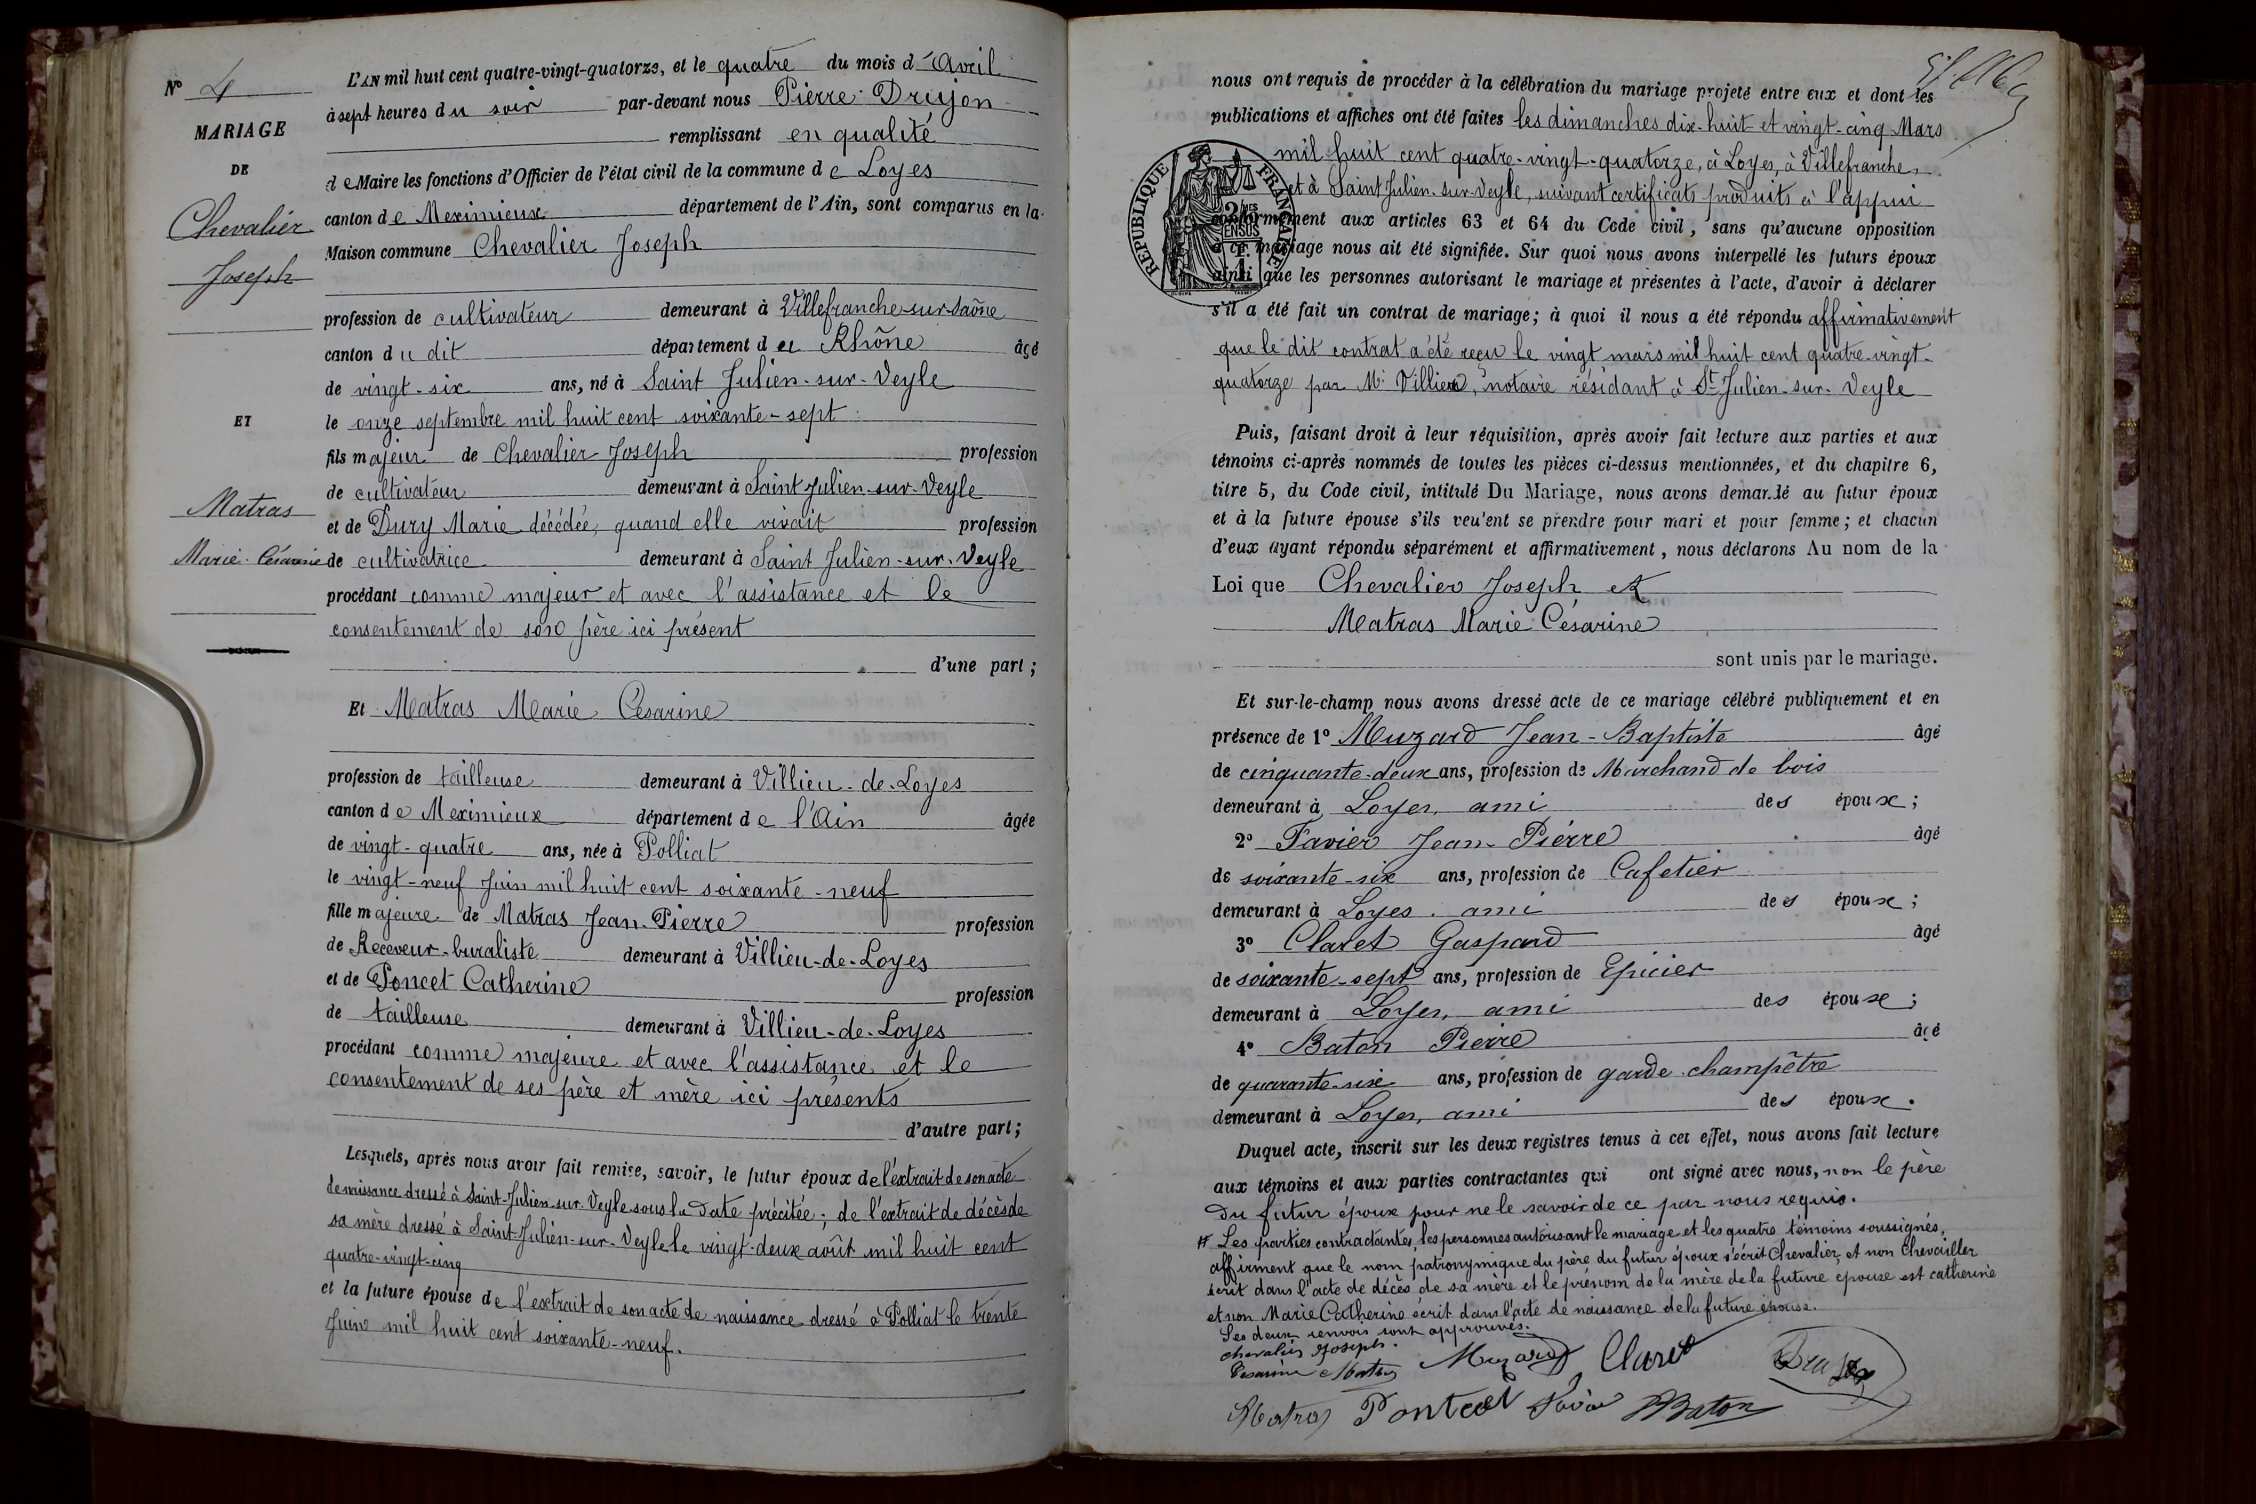 Nº 4
MARIAGE
DE
Chevalier
Joseph
ET
Matras
Marie Césarine
L'AN mil huit cent quatre-vingt-quatorze, et le quatre du mois d'Avril
à sept heures du soir par-devant nous Pierre Drujon
remplissant en qualité
de Maire les fonctions d'Officier de l'état civil de la commune de Loyes
canton de Meximieux département de l'Ain, sont comparus en la
Maison commune Chevalier Joseph
profession de cultivateur demeurant à Villefranche-sur-Saône
canton du dit département du Rhône âgé
de vingt-six ans, né à Saint Julien-sur-Veyle
le onze septembre mil huit cent soixante-sept
fils majeur de Chevalier Joseph profession
de cultivateur demeurant à Saint Julien-sur-Veyle
et de Dury Marie décédée, quand elle vivait profession
de cultivatrice demeurant à Saint Julien-sur-Veyle
procédant comme majeur et avec l'assistance et le
consentement de son père ici présent
d'une part ;
Et Matras Marie Césarine
profession de tailleuse demeurant à Villieu-de-Loyes
canton de Meximieux département de l'Ain âgée
de vingt-quatre ans, née à Polliat
le vingt-neuf Juin mil huit cent soixante-neuf
fille majeure de Matras Jean-Pierre profession
de Receveur-buraliste demeurant à Villieu-de-Loyes
et de Poncet Catherine profession
de tailleuse demeurant à Villieu-de-Loyes
procédant comme majeure et avec l'assistance et le
consentement de ses père et mère ici présents
d'autre part ;
Lesquels, après nous avoir fait remise, savoir, le futur époux de l'extrait de son acte
de naissance dressé à Saint-Julien-sur-Veyle sous la date précitée ; de l'extrait de décès de
sa mère dressé à Saint-Julien-sur-Veyle le vingt-deux août mil huit cent
quatre-vingt-cinq
et la future épouse de l'extrait de son acte de naissance dressé à Polliat le trente
Juin mil huit cent soixante-neuf.
nous ont requis de procéder à la célébration du mariage projeté entre eux et dont les
publications et affiches ont été faites les dimanches dix-huit et vingt-cinq Mars
mil huit cent quatre-vingt-quatorze, à Loyes, à Villefranche,
et à Saint Julien-sur-Veyle, suivant certificats produits à l'appui
REPUBLIQUE FRANÇAISE
conformément aux articles 63 et 64 du Code civil, sans qu'aucune opposition
à ce mariage nous ait été signifiée. Sur quoi nous avons interpellé les futurs époux
ainsi que les personnes autorisant le mariage et présentes à l'acte, d'avoir à déclarer
s'il a été fait un contrat de mariage ; à quoi il nous a été répondu affirmativement
que le dit contrat a été reçu le vingt mars mil huit cent quatre-vingt-
quatorze par Mᵉ Villier, notaire résidant à St Julien-sur-Veyle
Puis, faisant droit à leur réquisition, après avoir fait lecture aux parties et aux
témoins ci-après nommés de toutes les pièces ci-dessus mentionnées, et du chapitre 6,
titre 5, du Code civil, intitulé Du Mariage, nous avons demandé au futur époux
et à la future épouse s'ils veulent se prendre pour mari et pour femme ; et chacun
d'eux ayant répondu séparément et affirmativement, nous déclarons Au nom de la
Loi que Chevalier Joseph et
Matras Marie Césarine
sont unis par le mariage.
Et sur-le-champ nous avons dressé acte de ce mariage célébré publiquement et en
présence de 1º Muzard Jean-Baptiste âgé
de cinquante-deux ans, profession de Marchand de bois
demeurant à Loyes, ami des époux ;
2º Favier Jean-Pierre âgé
de soixante-six ans, profession de Cafetier
demeurant à Loyes, ami des époux ;
3º Claret Gaspard âgé
de soixante-sept ans, profession de Epicier
demeurant à Loyes, ami des époux ;
4º Baton Pierre âgé
de quarante-six ans, profession de garde-champêtre
demeurant à Loyes, ami des époux.
Duquel acte, inscrit sur les deux registres tenus à cet effet, nous avons fait lecture
aux témoins et aux parties contractantes qui ont signé avec nous, non le père
du futur époux pour ne le savoir de ce par nous requis.
# Les parties contractantes, les personnes autorisant le mariage et les quatre témoins soussignés,
affirment que le nom patronymique du père du futur époux s'écrit Chevalier, et non Chevailler
écrit dans l'acte de décès de sa mère et le prénom de la mère de la future épouse est catherine
et non Marie Catherine écrit dans l'acte de naissance de la future épouse.
Les deux renvois sont approuvés.
chevalier Joseph.
Césarine Matras Muzard Claret
Matras Pontcet Favier Baton